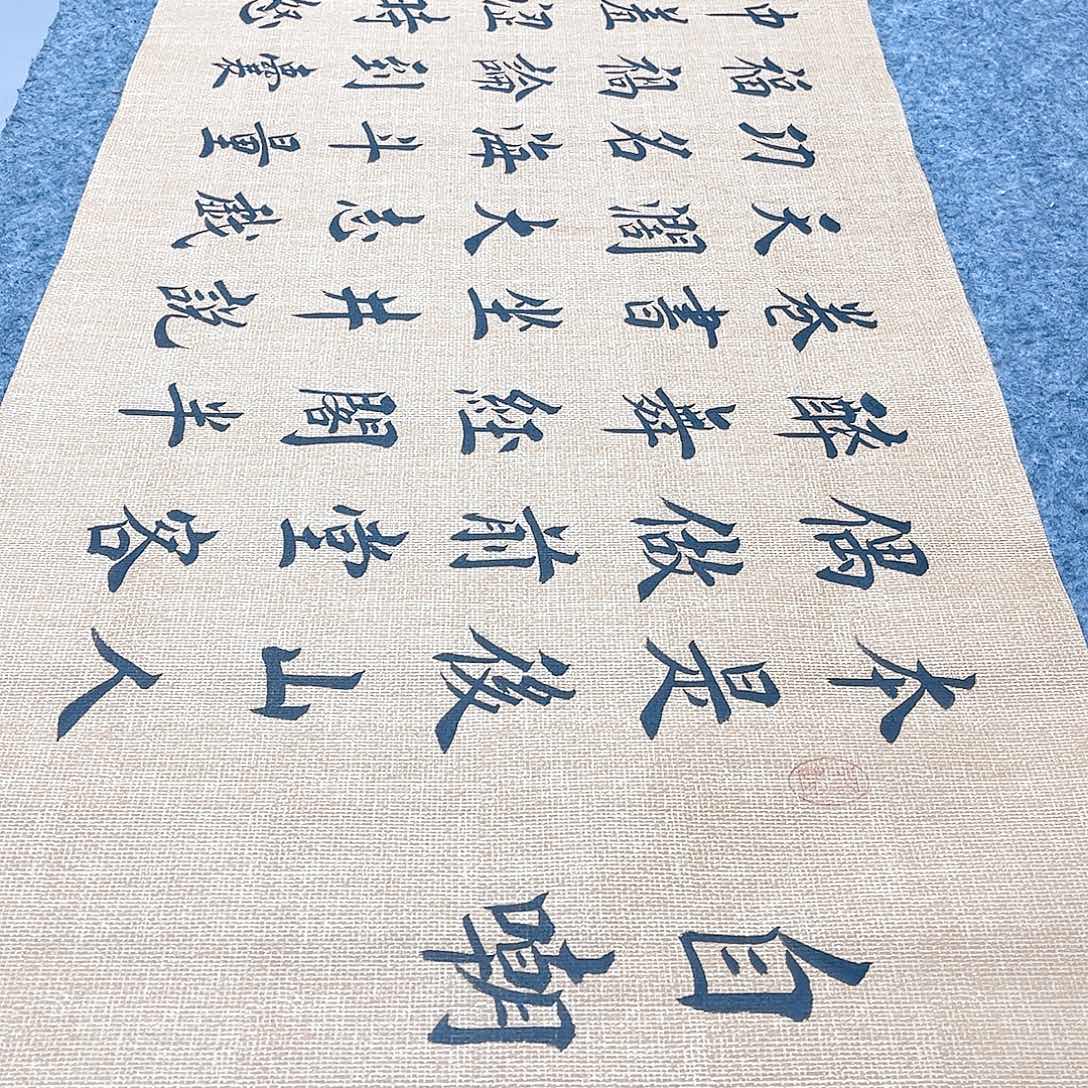 自嘲
本是後山人
偶做前堂客
醉舞經閣半
卷書坐井說
天闊大志戲
功名海斗量
福禍論到囊
中羞澀時怒